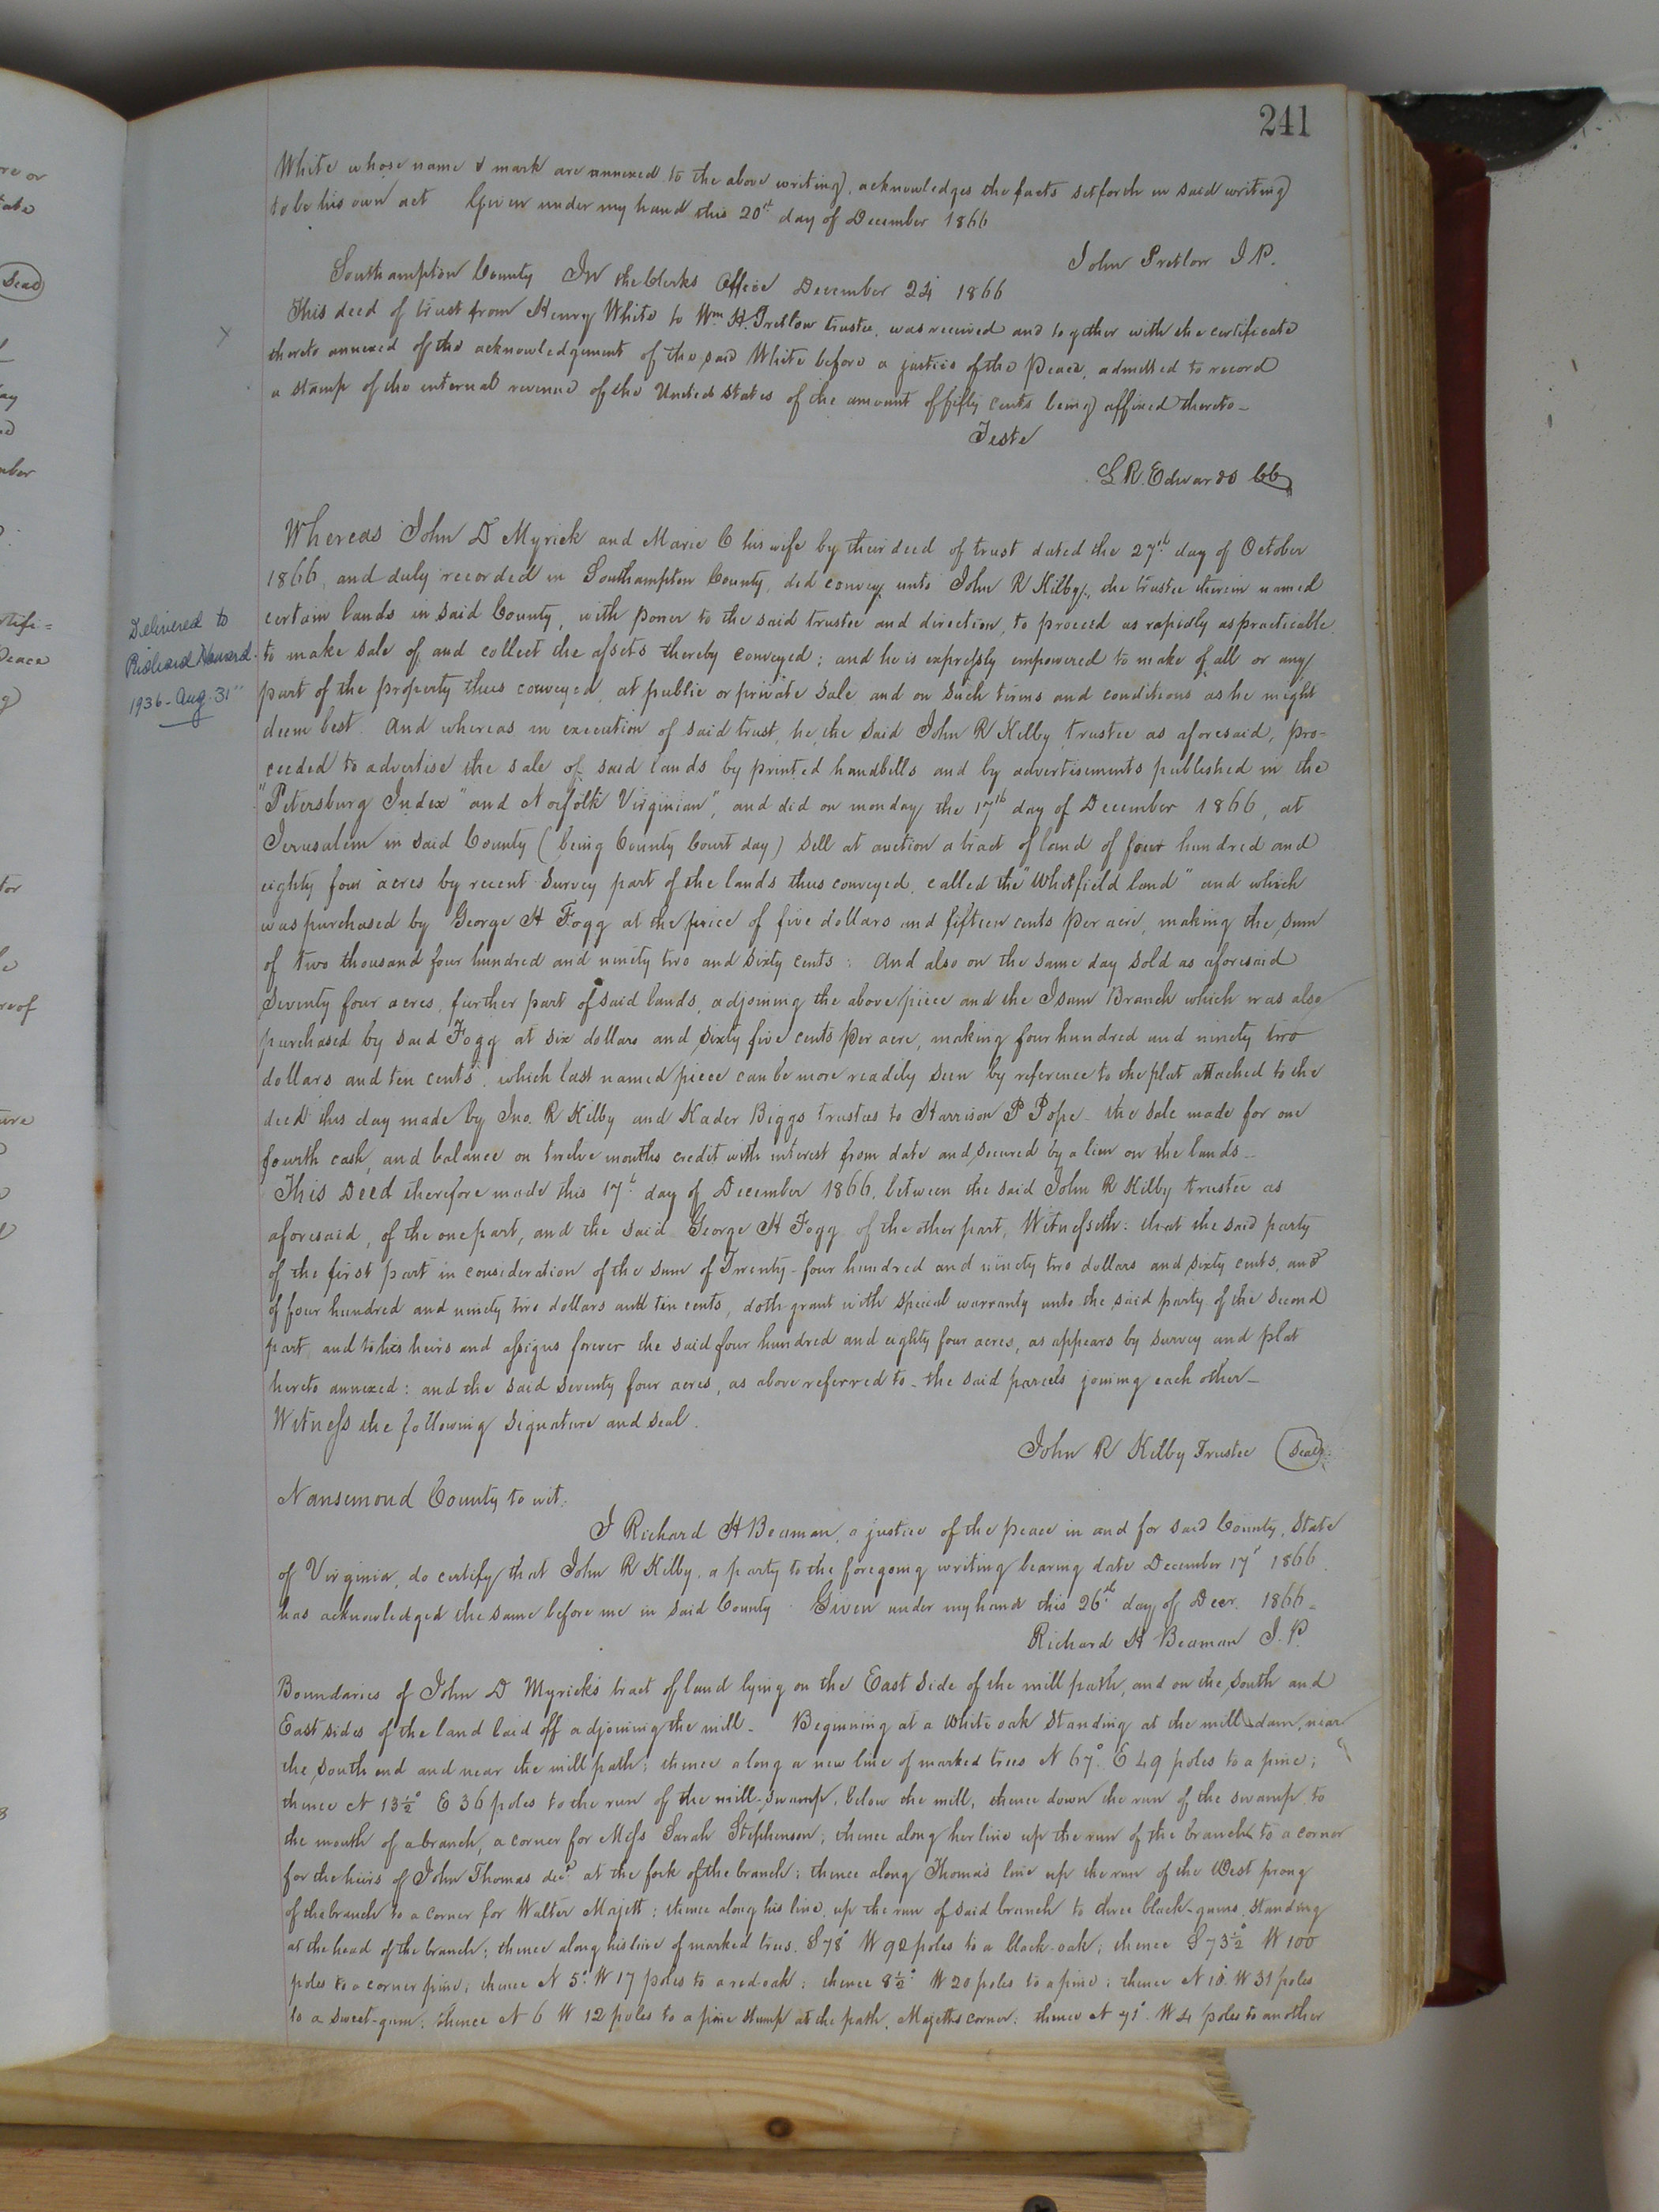 241
White whose name & mark are annexed to the above writing, acknowledges the facts setforth in said writing
to be his own act Given under my hand this 20th day of December 1866
John Pretlow J P.
Southampton County In the Clerks Office December 24 1866
This deed of trust from Henry White to Wm H. Pretlow trustee, was received and together with the certificate
thereto annexed of the acknowledgement of the said White before a justice of the Peace, admitted to record
a stamp of the internal revenue of the United States of the amount of fifty cents being affixed thereto-
Teste
L R. Edwards CC
Whereas John D Myrick and Marie C his wife by their deed of trust dated the 27th day of October
1866, and duly recorded in Southampton County, did convey unto John R Kilby, the trustee therein named
certain lands in said County, with power to the said trustee and direction, to proceed as rapidly as practicable
Delivered to
Richard
1936-Aug-31"
to make sale of and collect the assets thereby conveyed; and he is expressly empowered to make of all or any
part of the property thus conveyed, at public or private sale and on such terms and conditions as he might
deem best. And whereas in execution of said trust, he, the said John R Kilby, trustee as aforesaid, pro-
ceeded to advertise the sale of said lands by printed handbills and by advertisements published in the
"Petersburg Index" and Norfolk Virginian", and did on monday the 17th day of December 1866, at
Jerusalem in said County (being County Court day) sell at auction a tract of land of four hundred and
eighty four acres by recent survey part of the lands thus conveyed, called the "Whitfield land" and which
was purchased by George H Fogg at the price of five dollars and fifteen cents per acre, making the sum
of two thousand four hundred and ninety two and sixty cents: And also on the same day sold as aforesaid
seventy four acres, further part of said lands, adjoining the above piece and the Isam Branch which was also
purchased by said Fogg at six dollars and sixty five cents per acre, making four hundred and ninety two
dollars and ten cents, which last named piece can be more readily seen by reference to the plat attached to the
deed this day made by Jno. R Kilby and Kader Biggs trustees to Harrison P Pope- the sale made for one
fourth cash, and balance on twelve months credit with interest from date and secured by a lien on the lands-
This Deed therefore made this 17th day of December 1866, between the said John R Kilby trustee as
aforesaid, of the one part, and the said George H Fogg of the other part, Witnesseth: that the said party
of the first part in consideration of the sum of Twenty-four hundred and ninety two dollars and sixty cents, and
of four hundred and ninety two dollars and ten cents, doth grant with special warranty unto the said party of the second
part, and to his heirs and assigns forever the said four hundred and eighty four acres, as appears by survey and plat
hereto annexed: and the said seventy four acres, as above referred to- the said parcels joining each other-
Witness the following signature and seal.
John R Kilby Trustee (Seal)
Nansemond County to wit:
I Richard H Beaman, a justice of the peace in and for said County, State
of Virginia, do certify that John R Kilby, a party to the foregoing writing bearing date December 17th 1866.
has acknowledged the same before me in said County. Given under my hand this 26th day of Decr. 1866-
Richard H Beaman J. P.
Boundaries of John D Myrick's tract of land lying on the East side of the mill path, and on the south and
East sides of the land laid off adjoining the mill- Beginning at a white oak standing at the mill dam, near
the south end and near the mill path; thence along a new line of marked trees N 67° E 49 poles to a pine;
thence N 13½° E 36 poles to the run of the mill-swamp, below the mill, thence down the run of the swamp to
the mouth of a branch, a corner for Miss Sarah Stephenson; thence along her line up the run of the branch to a corner
for the heirs of John Thomas decd at the fork of the branch; thence along Thomas line up the run of the West prong
of the branch to a corner for Walter Majett; thence along his line, up the run of said branch to three black-gums, standing
at the head of the branch; thence along his line of marked trees. S 78° W 92 poles to a black-oak; thence S 73½° W 100
poles to a corner pine; thence N 5° W 17 poles to a red-oak; thence 8½° W 20 poles to a pine; thence N 10° W 31 poles
to a sweet-gum; thence N 6 W 12 poles to a pine stump at the path, Majetts corner; thence N 71° W 4 poles to another